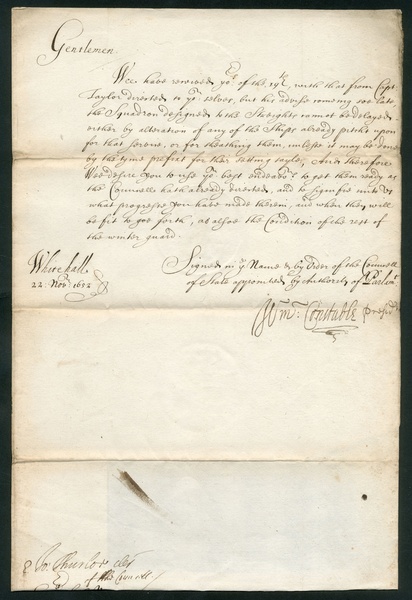 Gentlemen.
Wee have received yors of the 19th, with that from Capt
Taylor directed to yor selves, but his advise coming soe late,
the Squadron designed to the Streights cannot be delayed
either by alteration of any of the Ships already pitcht upon
for that service, or for sheathing them, unlesse it may be done
by the tyme prefixt for their setting sayle, And therefore
Wee desire you to use yor best endeavrs to get them ready as
the Councell hath already directed, and to signifie unto us
what progresse you have made therein, and when they will
be fit to goe forth, as alsoe the Condition of the rest of
the winter guard.
Whitehall
22. Novr. 1652
Signed in ye Name & by Order of the Councell
of State appointed by Authority of Parlamt
Wm: Constable presidt
Jo: Thurloe Cler
of the Councell